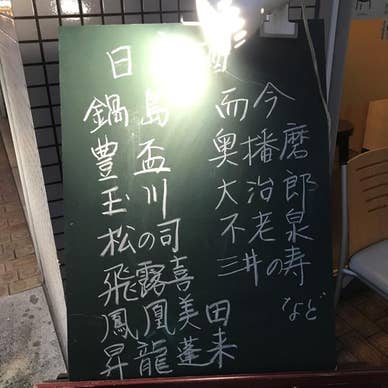 日 酒
鍋島
豊盃
玉川
松の司
飛露喜
鳳凰美田
昇龍蓬来
而今
奥播磨
大治郎
不老泉
三井の寿
など